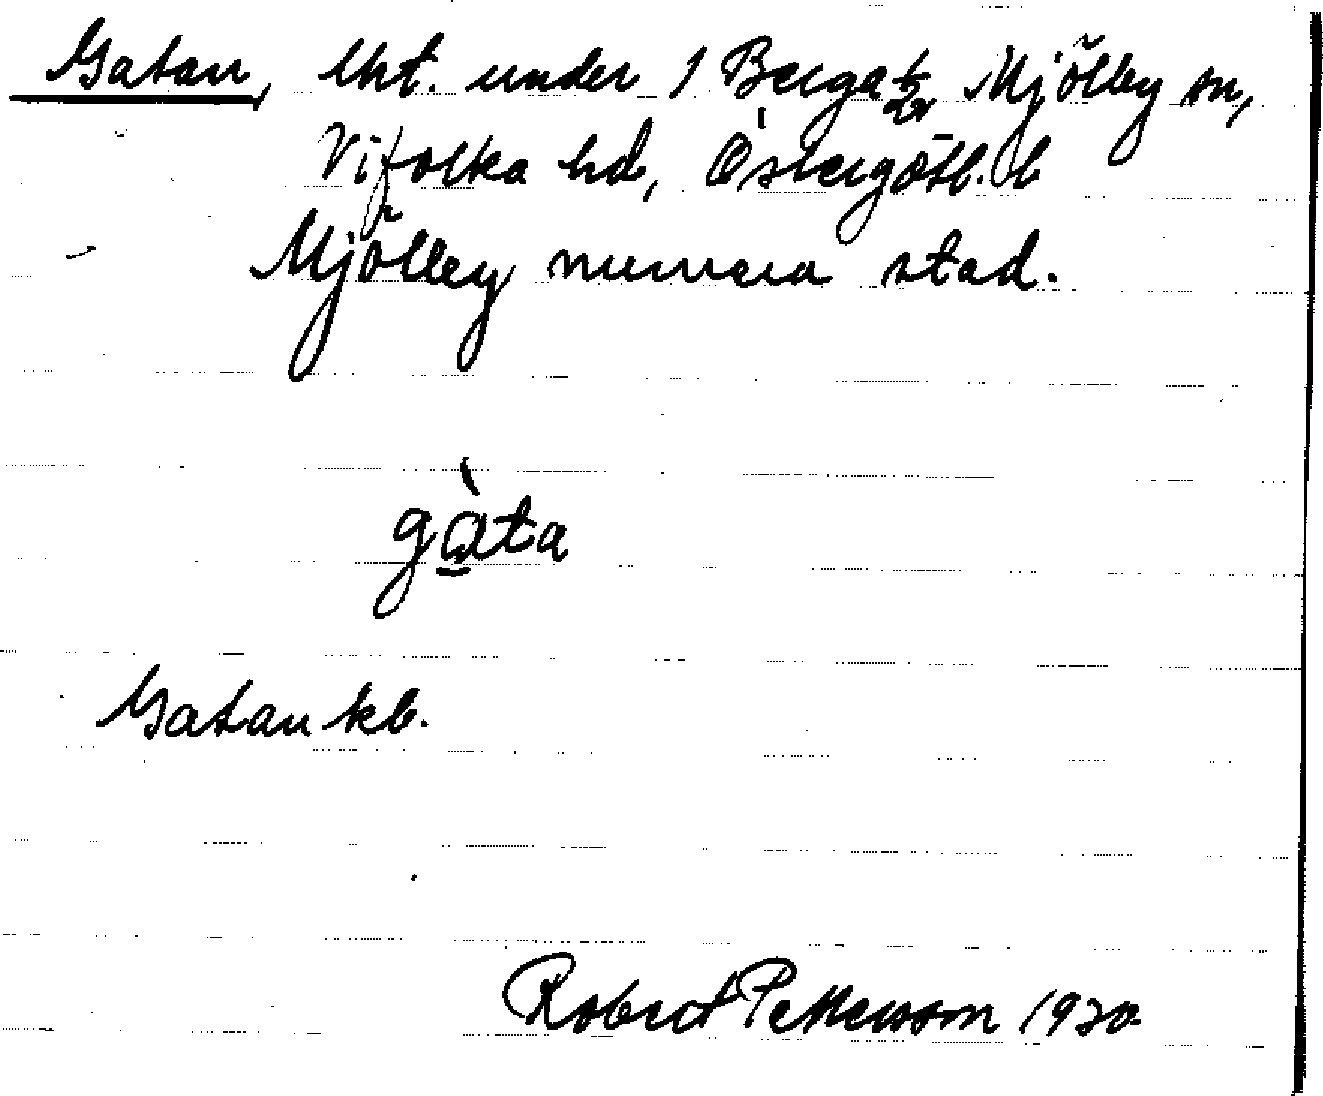 Gatan, lht. under 1 Berga Mjölby sn,
Vifolka hd, Östergötl. l
Mjölby numera stad.
gàta
Gatan kb.
Robert Pettersson 1930